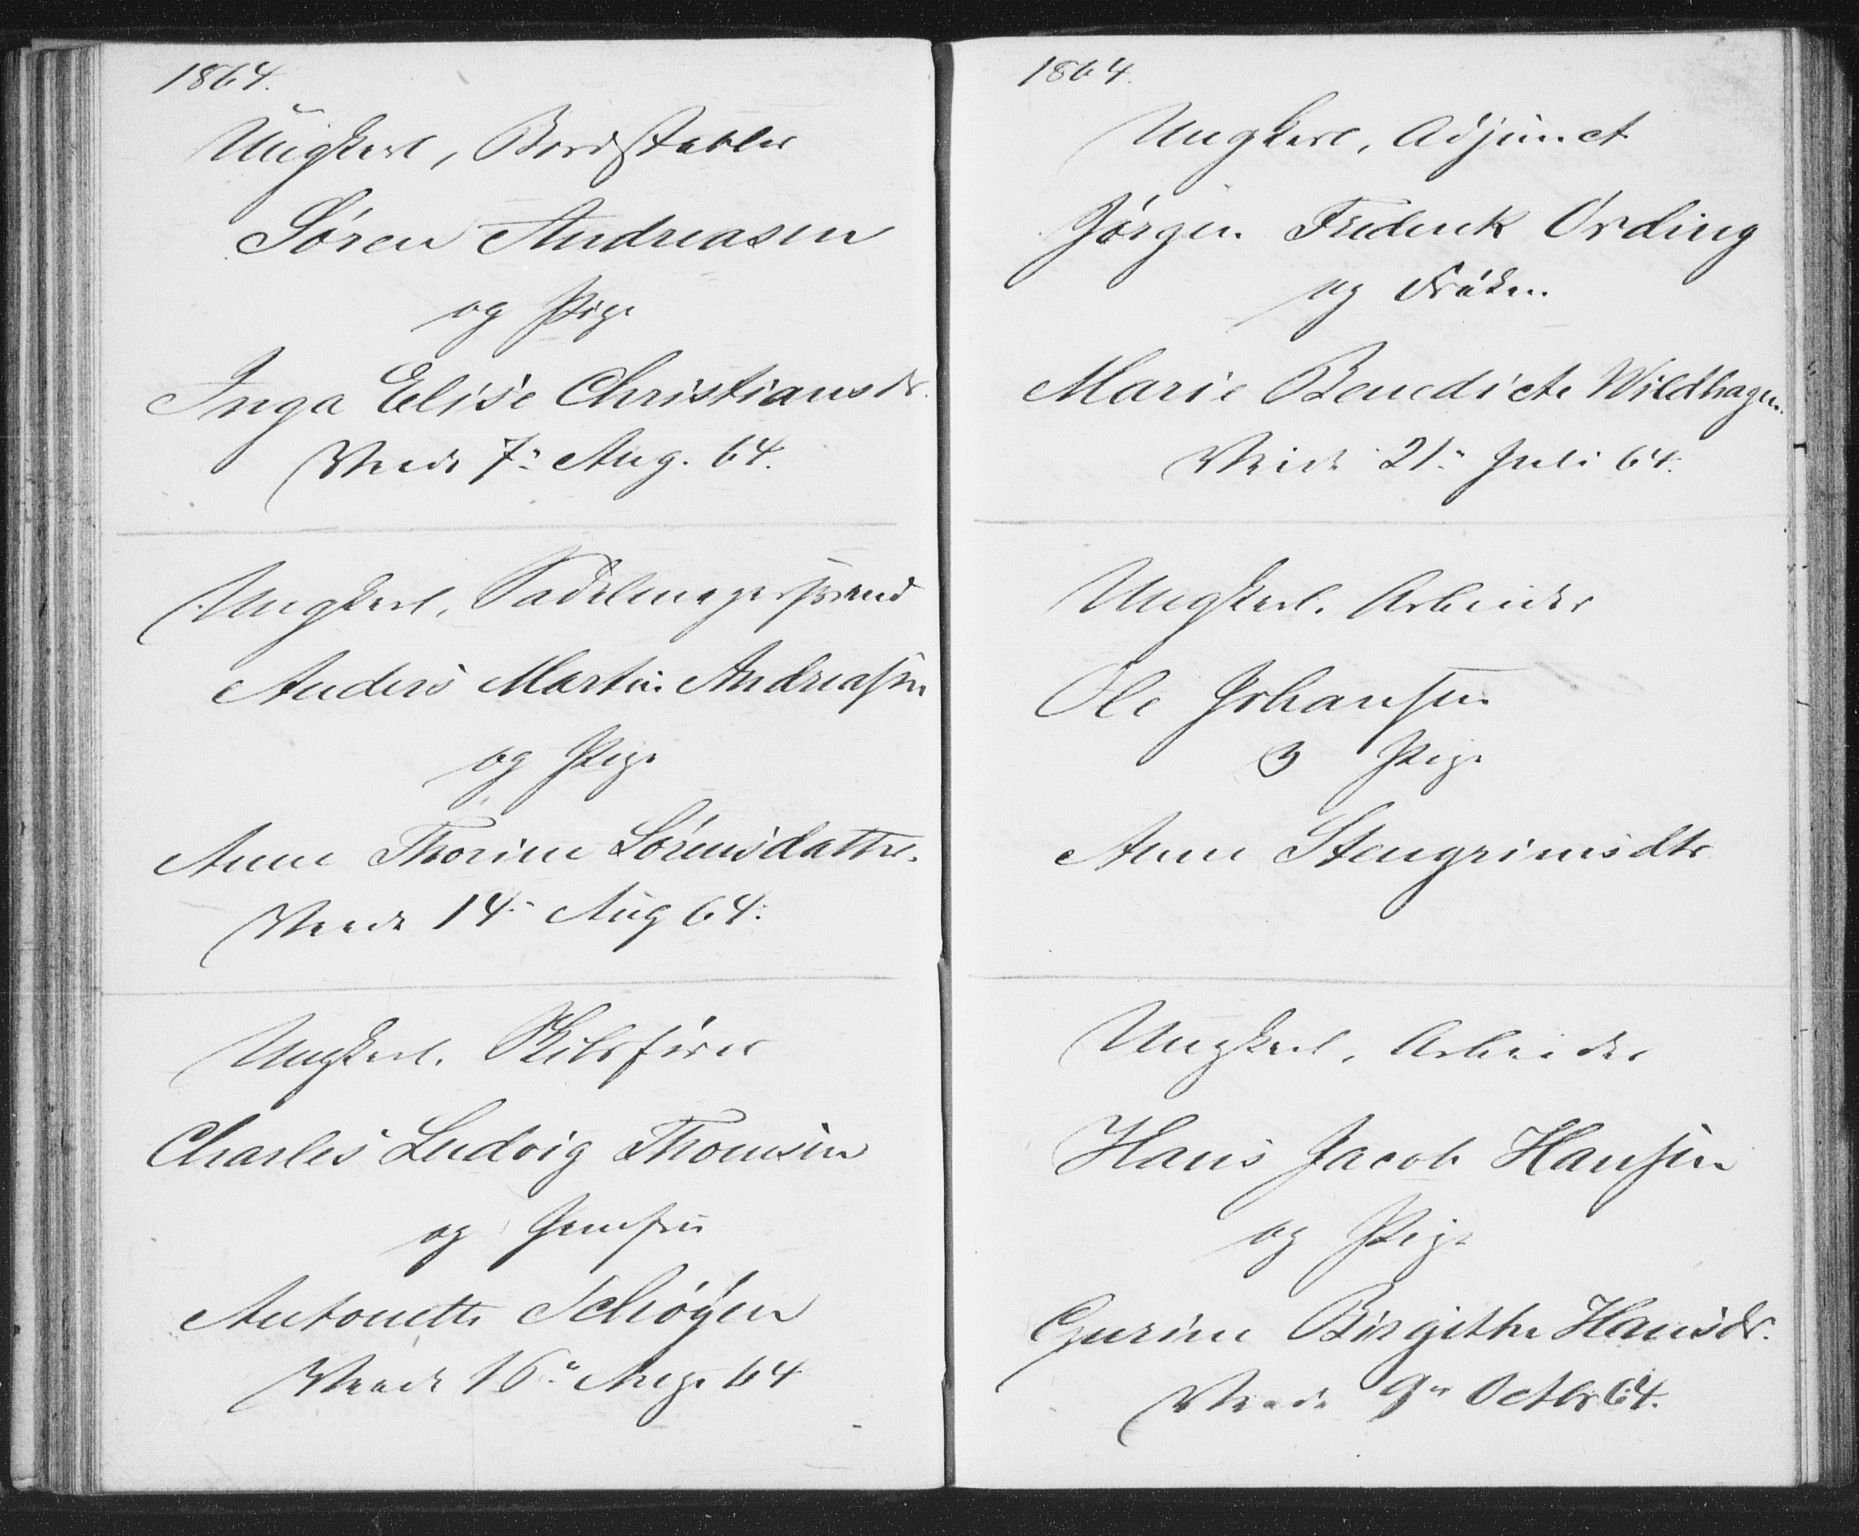 1864.
Ungkarl, Bordstabler
Søren Andreasen
og Pige
Inga Elise Christiansdr.
Viede 7de Aug. 64.
Ungkarl, Sadelmagersvend
Anders Martin Andreasen
og Pige
Anne Thorine Sörensdatter.
Viede 14de Aug 64.
Ungkarl. Skibsfører
Charles Ludvig Thomsen
og Jomfru
Antonette Schøyen
Viede 16de Aug. 64
1864.
Ungkarl, Adjunct
Jörgen Frederik Ording
og Fröken
Marie Benedicte Wildhagen.
Viede 21de Juli 64.
Ungkarl. Arbeider
Ole Johansen
og Pige
Anne Stengrimsdtr
Ungkarl, Arbeider
Hans Jacob Hansen
og Pige
Gurine Birgithe Hansdr.
Viede 9de Octbr 64.